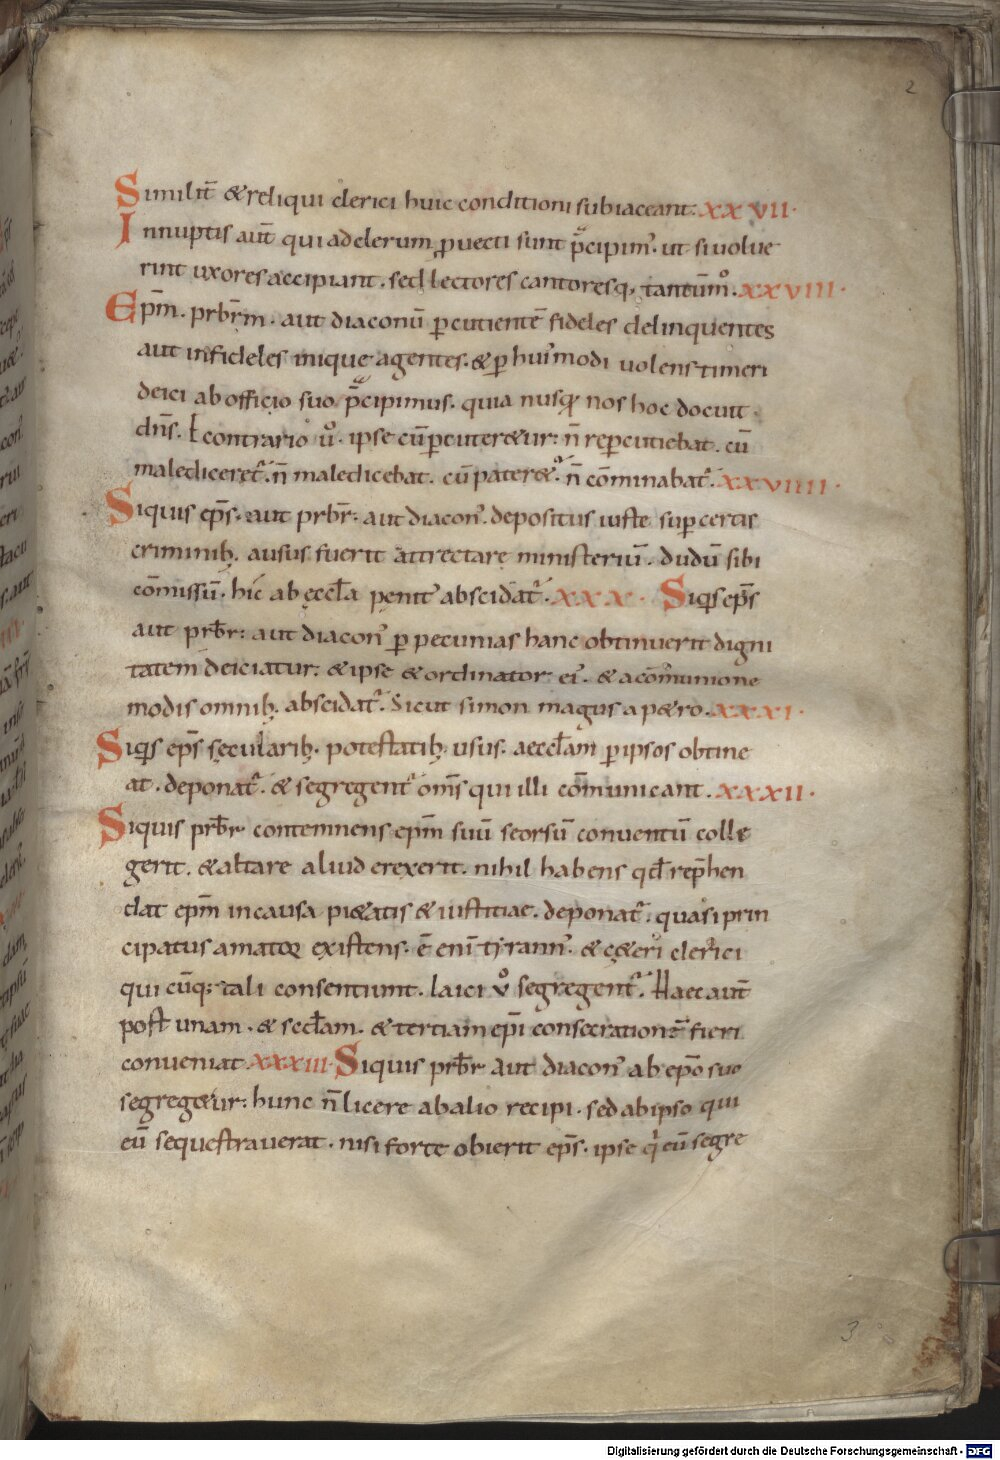 2
Similit̄ & reliqui clerici huic conditioni subiaceant. XXVII.
Innuptis aut̄ qui ad clerum ꝓuecti sunt p̄cipim᾽. ut si uolue
rint uxores accipiant. sed lectores cantoresq; tantūm᷎o. XXVIII.
Ep̄m. prbr̄m. aut diaconū ꝑcutientē fideles delinquentes
aut infideles inique agentes. & ꝑ hui᾽modi uolens timeri
deici ab officio suo p̄cipimus. quia nusqꝫ nos hoc docuit.
dn̄s. E contrario uͦ. ipse cū ꝑcuteret&ur: n̄ reꝑcutiebat. cū
malediceret᷑. n̄ maledicebat. cū pater&᷑. n̄ cōminabat᷑. XXVIIII.
Siquis ep̄s. aut prbr̄. aut diacon᾽. depositus iuste suꝑ certis
criminib;. ausus fuerit attrectare ministeriū. dudū sibi
cōmissū. hic ab ęccl̄a penit᾽ abscidat᷑. XXX. Siqis ep̄s
aut prbr̄: aut diacon᾽ ꝑ pecunias hanc obtinuerit digni
tatem deiciatur. & ipse & ordinator ei᾽. & a cōmunione
modis omnib;. abscidat᷑. Sicut simon magus a p&ro. XXXI.
Siqis ep̄s sęcularib;. potestatib; usus. aeccl̄am ꝑ ipsos obtine
at. deponat᷑. & segregent᷑ om̄s qui illi cōmunicant. XXXII.
Siquis prbr̄ contemnens ep̄m suū seorsū conuentū colle
gerit. & altare aliud erexerit. nihil habens qd̄ rep̄hen
dat ep̄m in causa pi&atis & iustitiae. deponat᷑. quasi prin
cipatus amator existens. ē eni᷎ tyrann᾽. & c&eri clerici
qui cūq; tali consentiunt. laici uͦ segregent᷑. Haec aut̄
post unam. & secd̄am. & tertiam ep̄i consecrationē fieri
conueniat XXXIII. Siquis prbr̄ aut diacon᾽ ab ep̄o suo
segreg&ur: hunc n̄ licere ab alio recipi. sed ab ipso qui
eū sequestrauerat. nisi forte obierit ep̄s. ipse qi eū segre
3
Digitalisierung gefördert durch die Deutsche Forschungsgemeinschaft - DFG